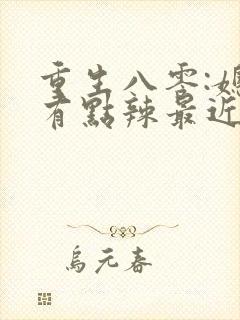 重生八零:媳
有點辣最近
烏元春